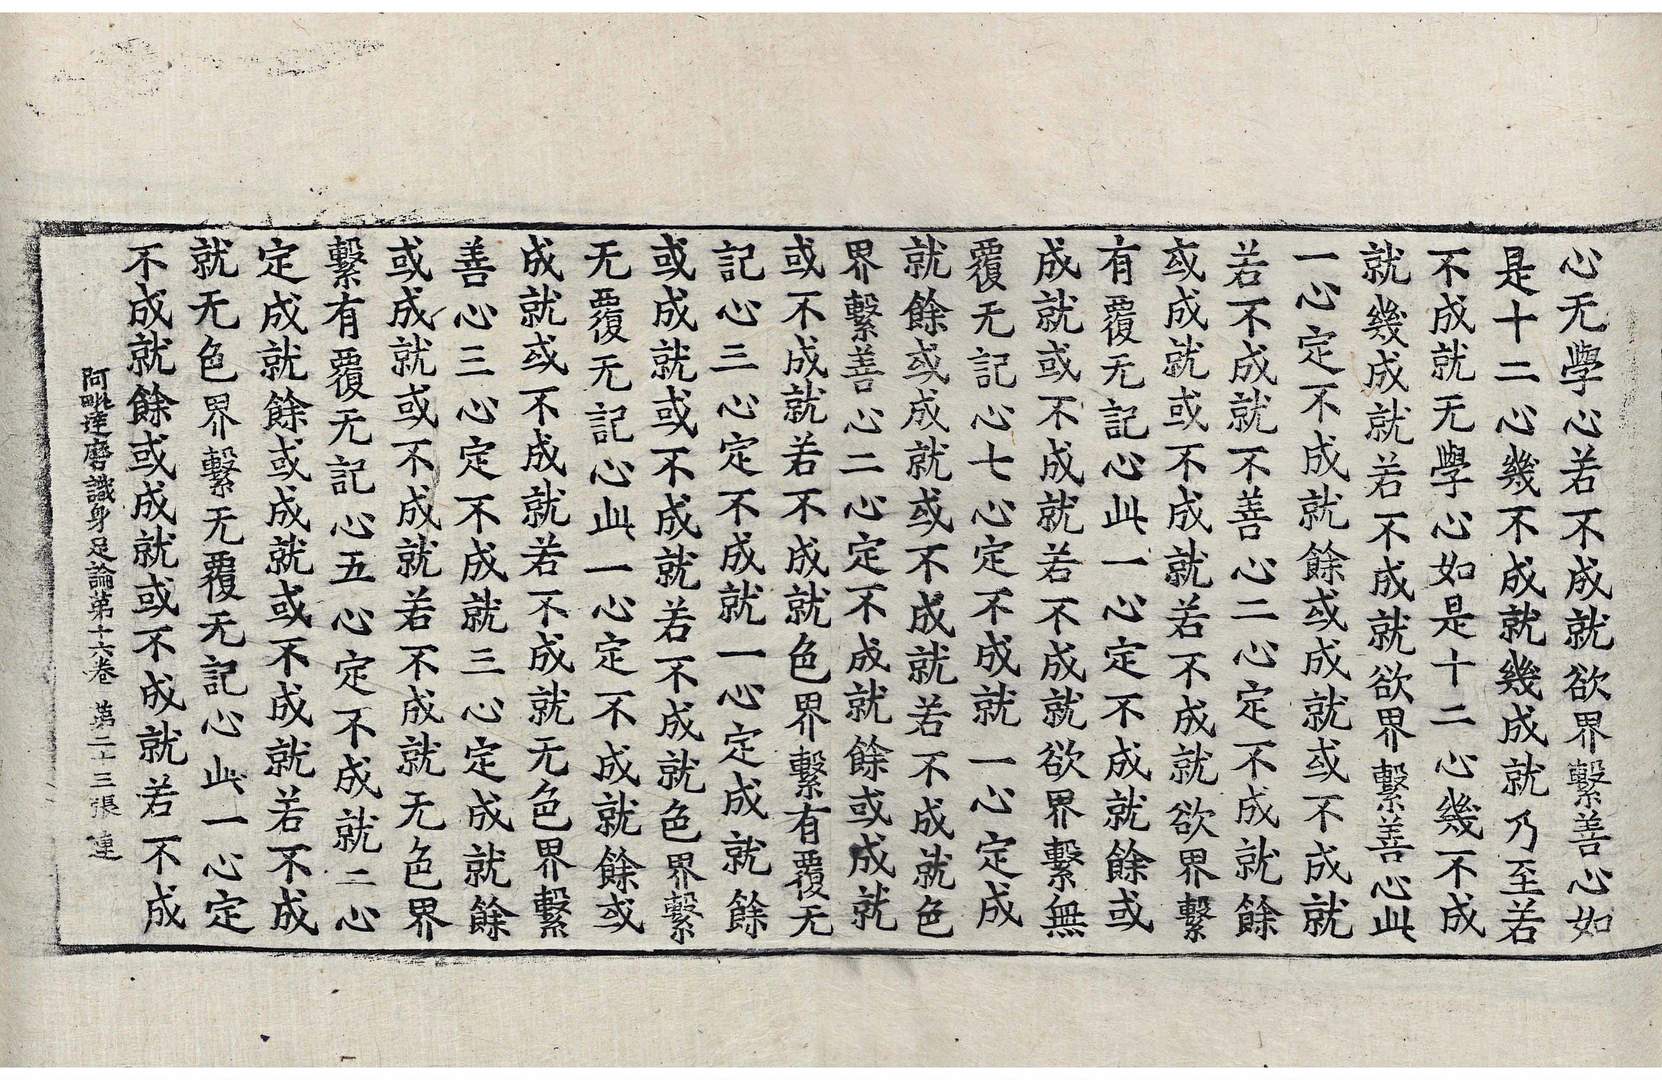 心无學心若不成就欲界繫善心如
是十二心幾不成就幾成就乃至若
不成就无學心如是十二心幾不成
就幾成就若不成就欲界繫善心此
一心定不成就餘或成就或不成就
若不成就不善心二心定不成就餘
或成就或不成就若不成就欲界繫
有覆无記心此一心定不成就餘或
成就或不成就若不成就欲界繫無
覆无記心七心定不成就一心定成
就餘或成就或不成就若不成就色
界繫善心二心定不成就餘或成就
或不成就若不成就色界繫有覆无
記心三心定不成就一心定成就餘
或成就或不成就若不成就色界繫
无覆无記心此一心定不成就餘或
成就或不成就若不成就无色界繫
善心三心定不成就三心定成就餘
或成就或不成就若不成就无色界
繫有覆无記心五心定不成就二心
定成就餘或成就或不成就若不成
就无色界繫无覆无記心此一心定
不成就餘或成就或不成就若不成
阿毗達磨識身足論第十六卷 第二十三張 連